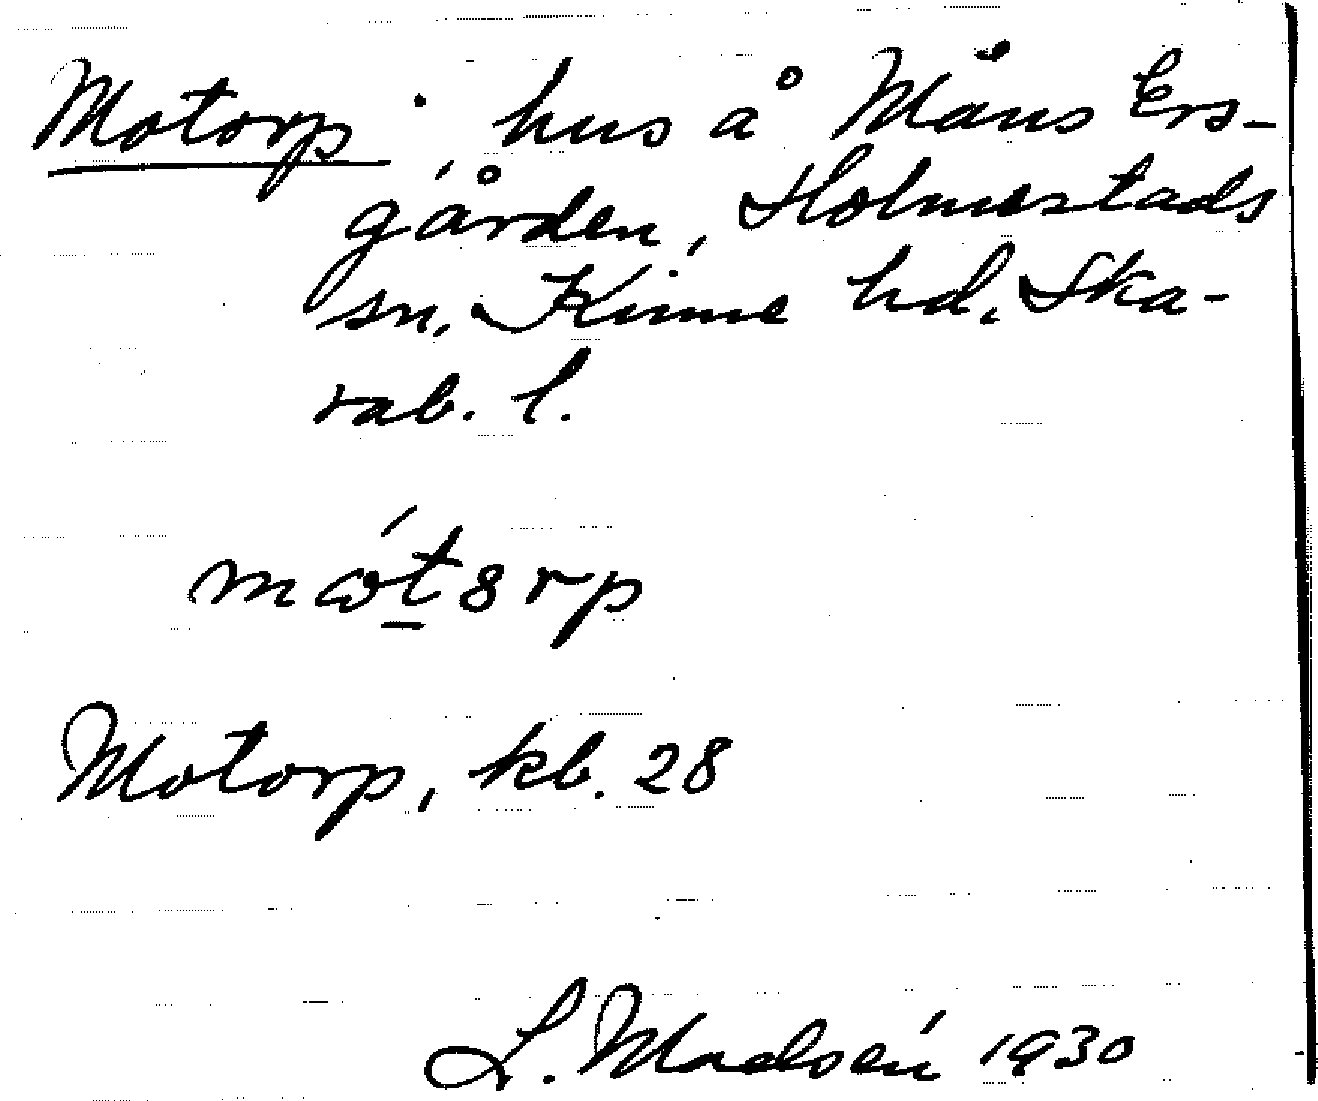 Motorp, hus å Måns Ers-
gården, Holmestads
sn. Kinne hd. Ska-
rab. l.
mωt8rp
Motorp, kb. 28
L. Madsén 1930